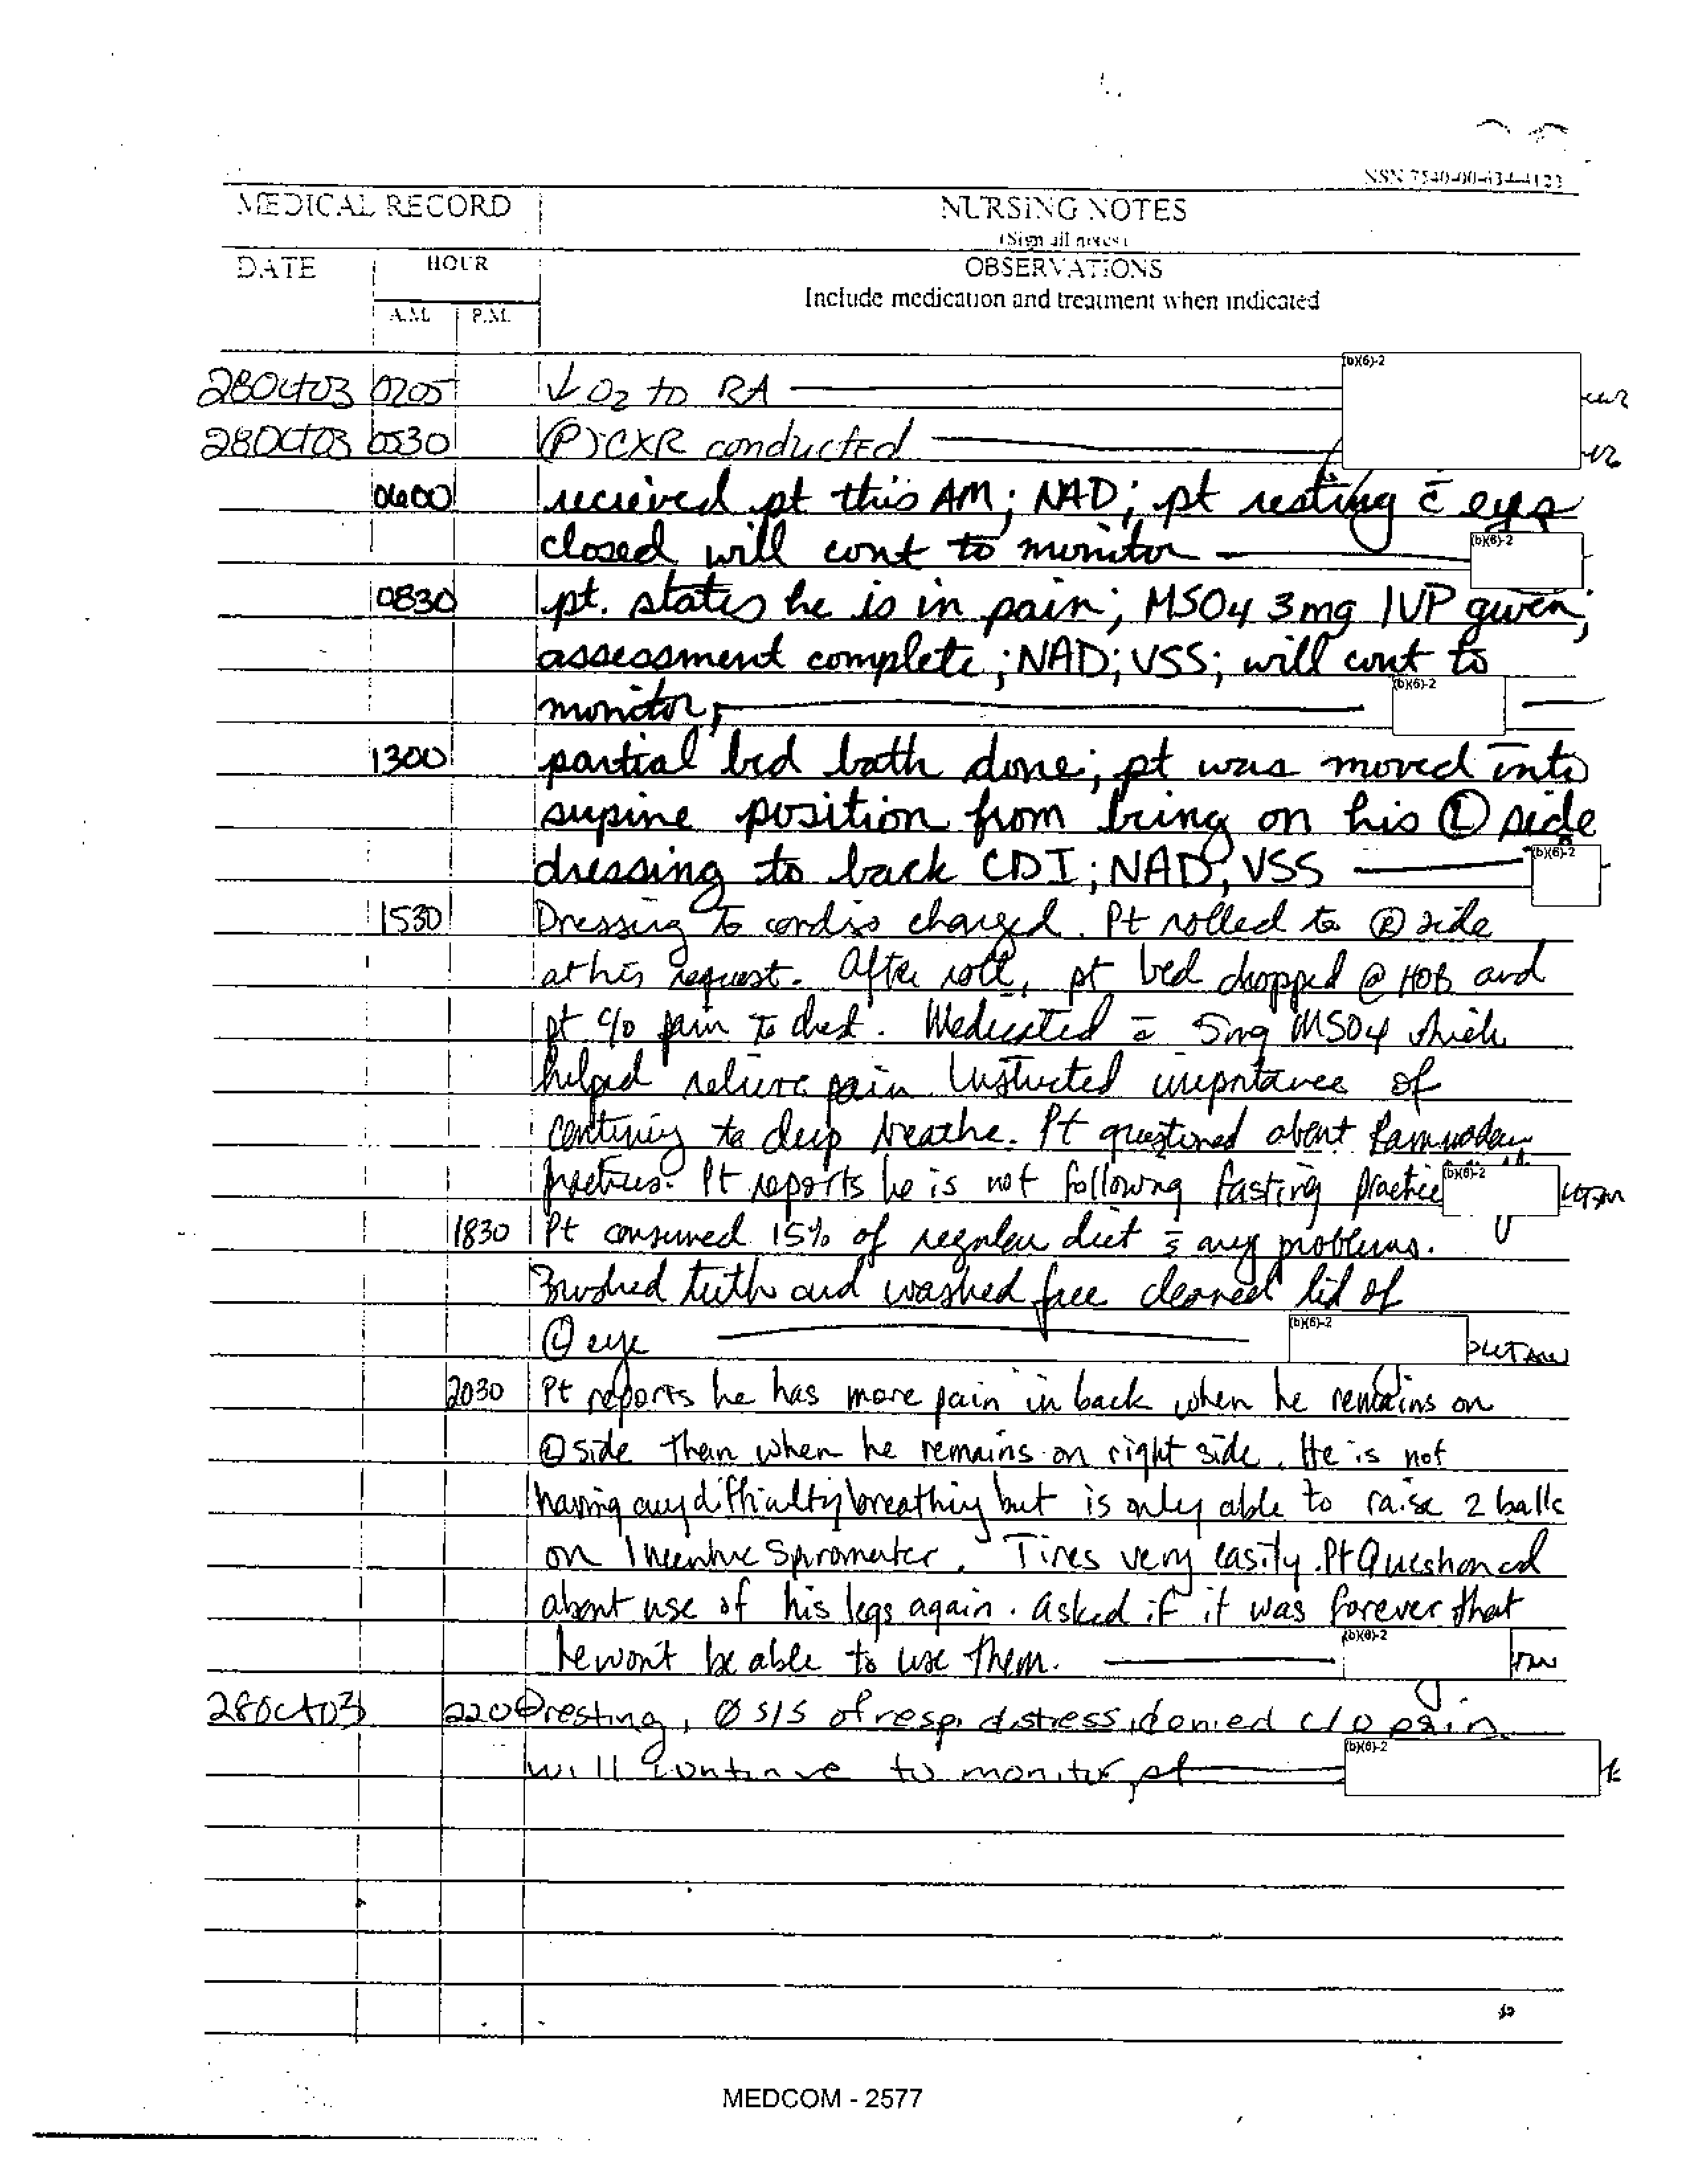 NSN 7540-00-634-4123
MEDICAL RECORD
NURSING NOTES
(Sign all notes)
DATE
HOUR
OBSERVATIONS
Include medication and treatment when indicated
A.M. P.M.
(b)(6)-2
28Oct03 0205 ↓ O2 to RA
28Oct03 0530 (P) CXR conducted
0600 recieved pt this AM; NAD; pt resting c̄ eyes
closed will cont to monitor (b)(6)-2
0830 pt. states he is in pain; MSO4 3mg IVP given;
assessment complete; NAD; VSS; will cont to
monitor, (b)(6)-2
1300 partial bed bath done; pt was moved into
supine position from being on his Ⓛ side
dressing to back CDI; NAD, VSS (b)(6)-2
1530 Dressing to cordis changed. Pt rolled to Ⓡ side
at his request. After roll, pt bed dropped @ HOB and
pt c/o pain to chest. Medicated c̄ 5mg MSO4 which
helped relieve pain Instructed importance of
continuing to deep breathe. Pt questioned about Ramadan
practices. Pt reports he is not following fasting practice (b)(6)-2
1830 Pt consumed 15% of regular diet s̄ any problems.
Brushed teeth and washed face cleaned lid of
Ⓛ eye (b)(6)-2
2030 Pt reports he has more pain in back when he remains on
Ⓛ side than when he remains on right side. He is not
having any difficulty breathing but is only able to raise 2 balls
on Incentive Spirometer. Tires very easily. Pt Questioned
about use of his legs again. Asked if it was forever that
he won't be able to use them. (b)(6)-2
28Oct03 2200 resting, Ø s/s of resp. distress, denied c/o pain
will continue to monitor pt (b)(6)-2
MEDCOM - 2577